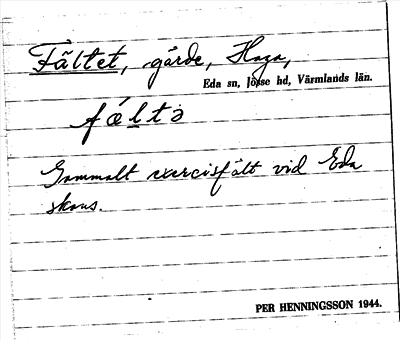 Fältet, gärde, Haga,
Eda sn, Jösse hd, Värmlands län.
fæltə
Gammalt exercisfält vid Eda
skans.
PER HENNINGSSON 1944.